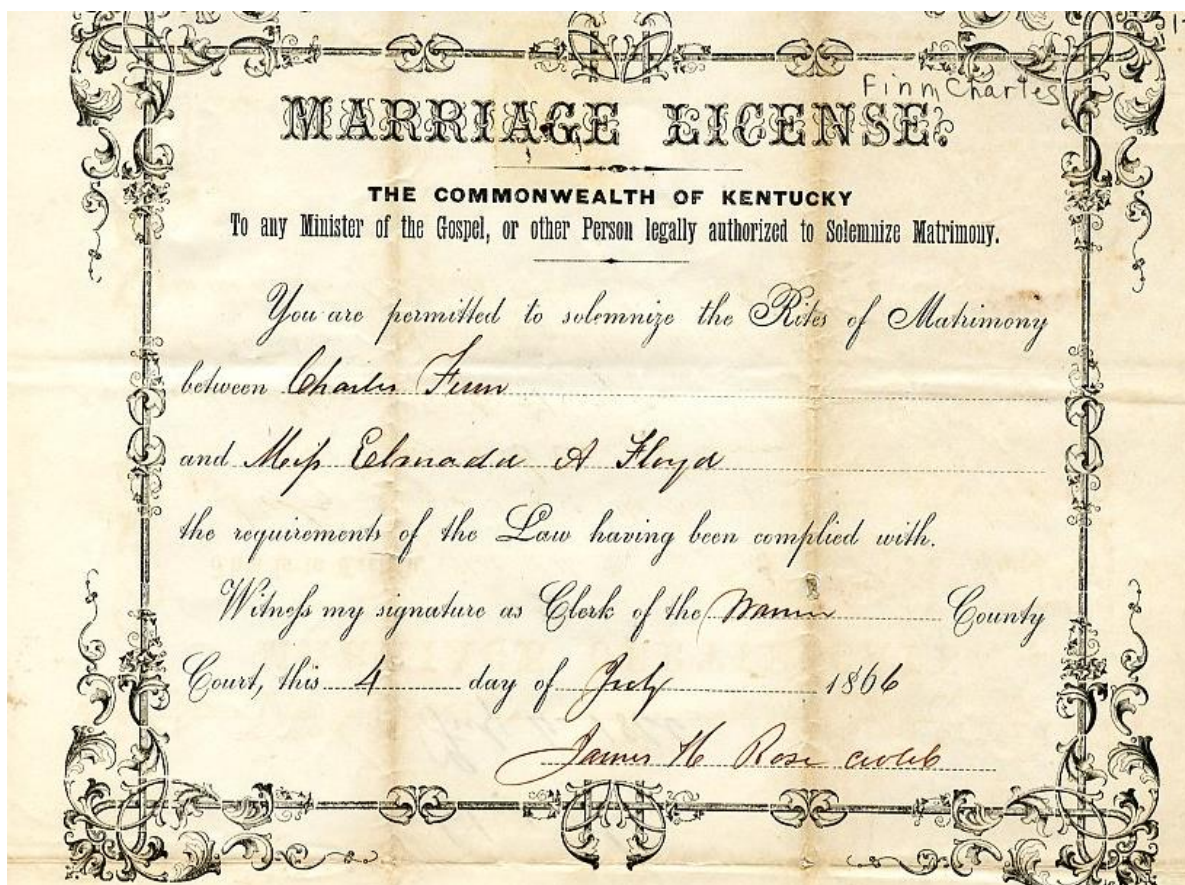 Finn Charles
MARRIAGE LICENSE.
THE COMMONWEALTH OF KENTUCKY
To any Minister of the Gospel, or other Person legally authorized to Solemnize Matrimony.
You are permitted to solemnize the Rites of Matrimony
between Charles Finn
and Miss A Floyd
the requirements of the Law having been complied with.
Witness my signature as Clerk of the Warren County
Court, this 4 day of July 1866
James H Rose